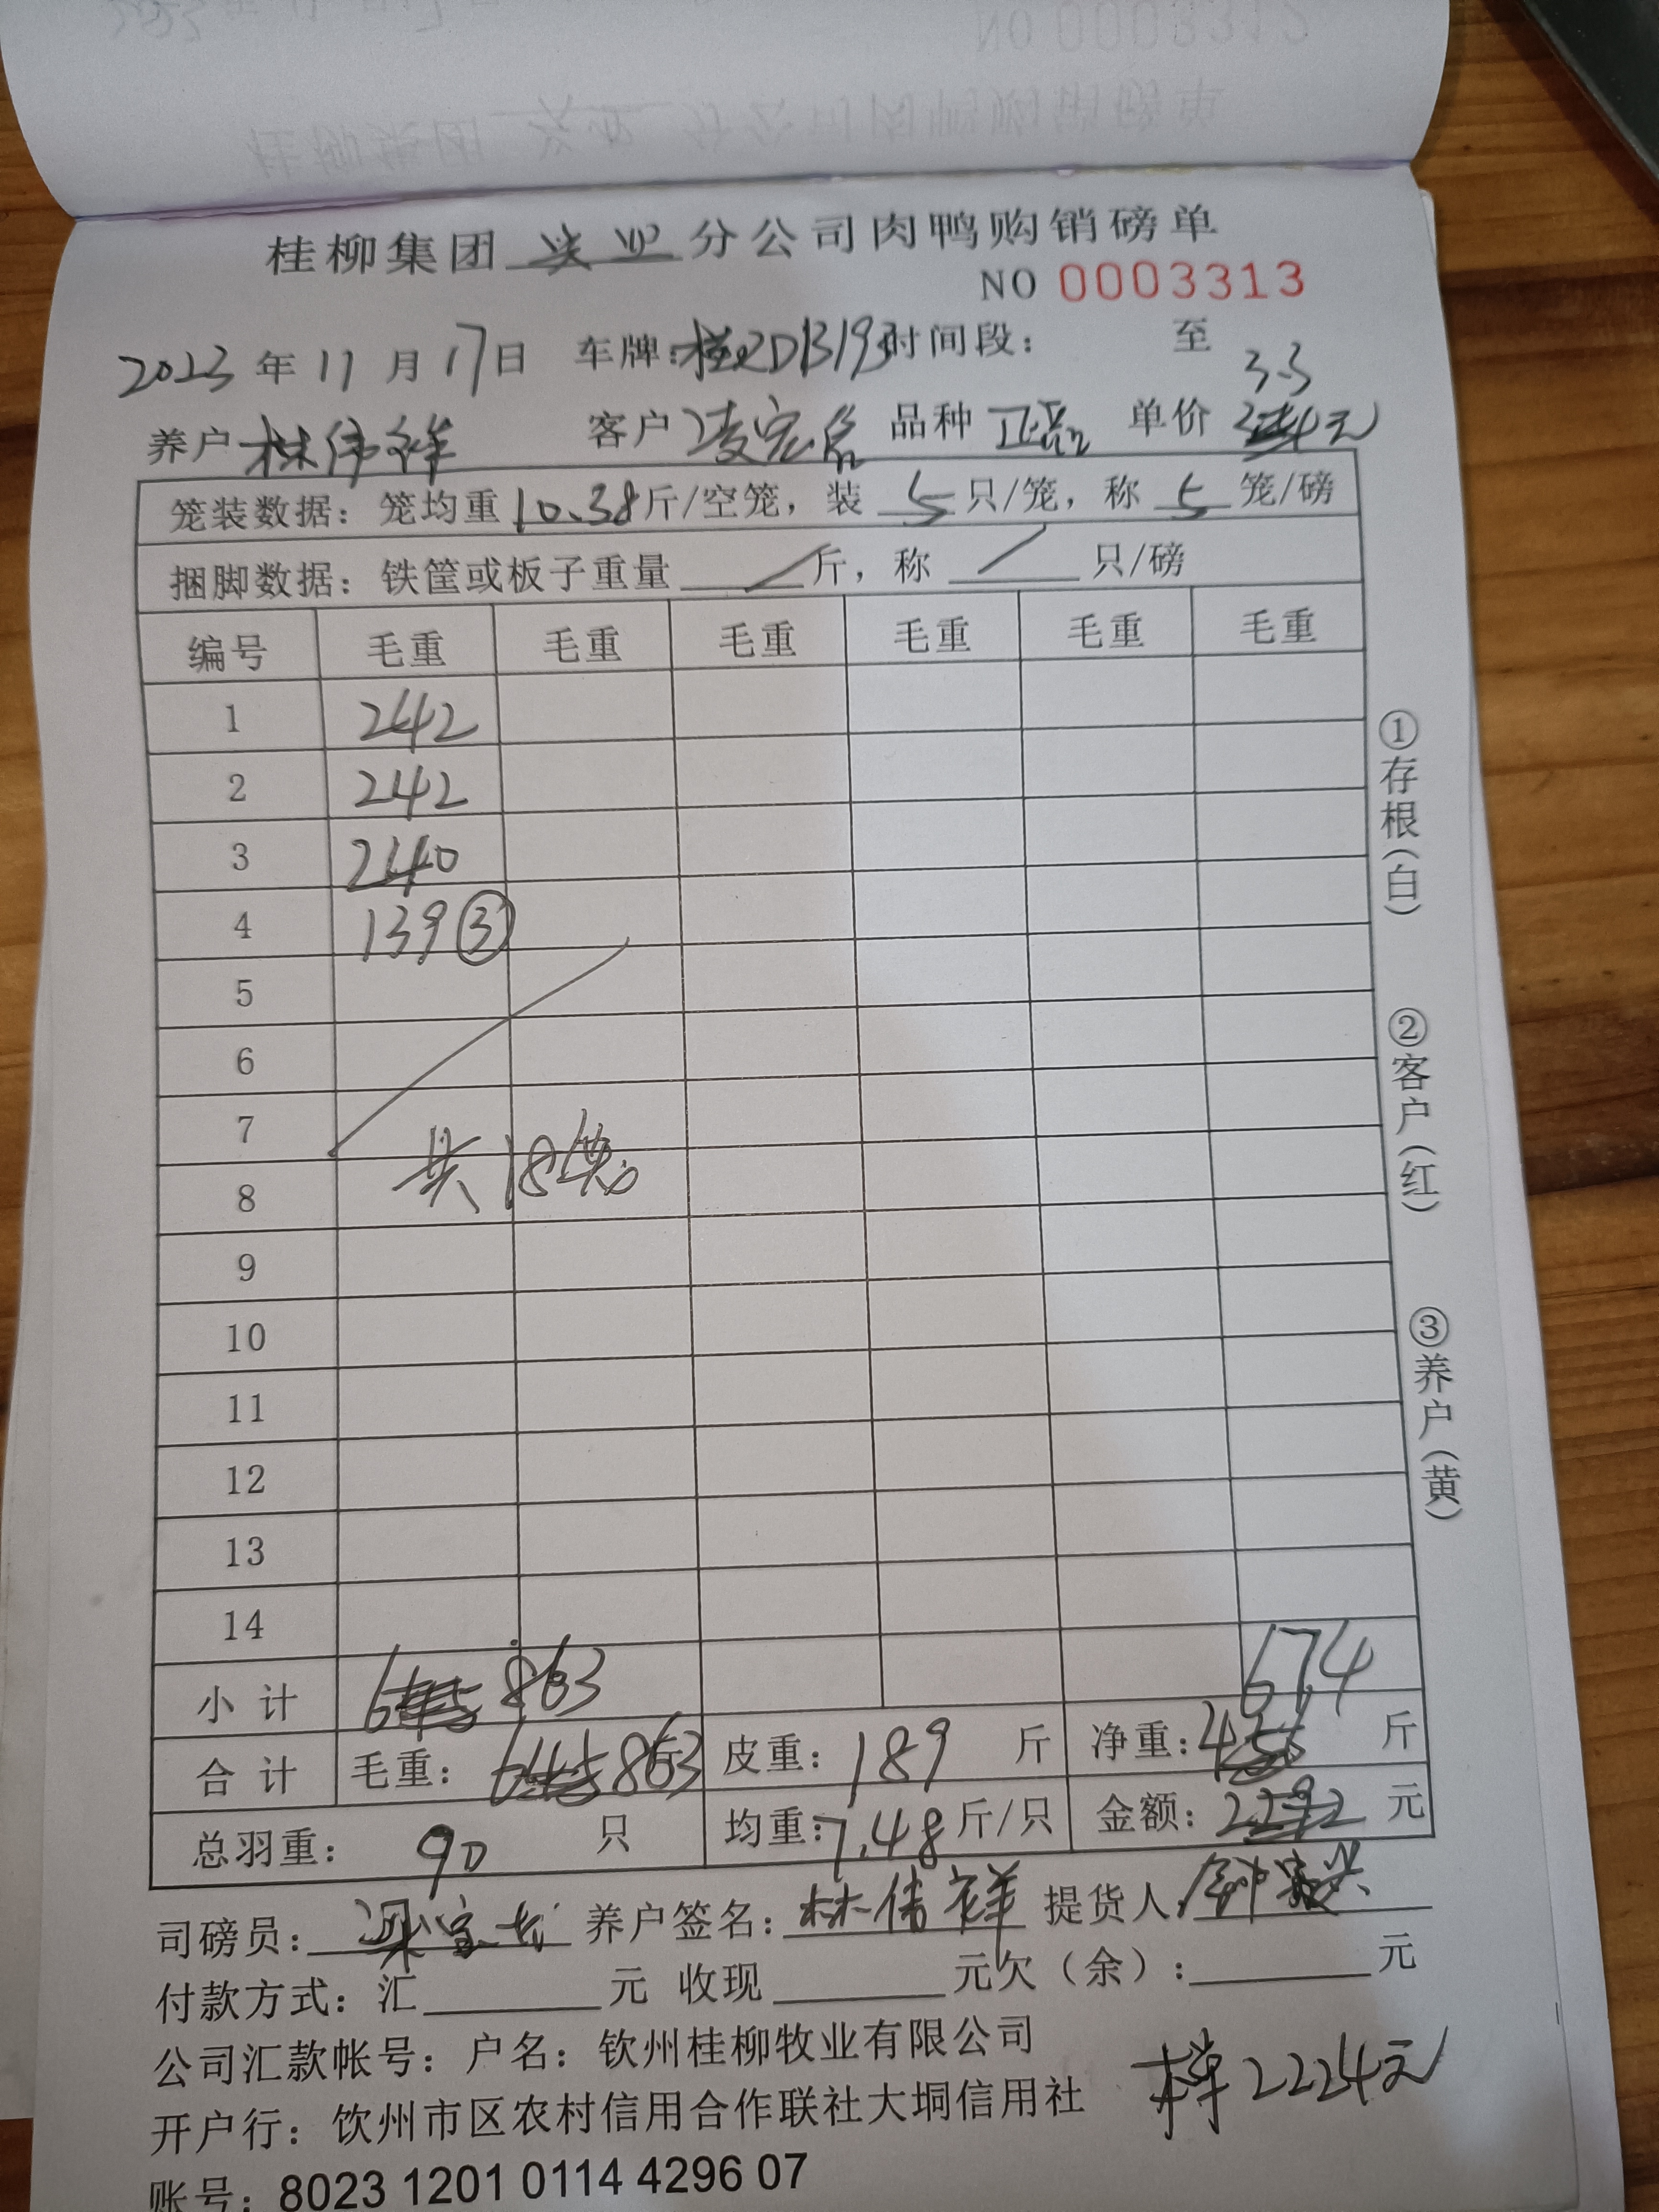 桂柳集团 分公司肉鸭购销磅单
NO 0003313
2023年11月17日 车牌: 时间段: 至
3.3
养户 林伟祥 客户 凌宏 品种 正品 单价 元
笼装数据: 笼均重 10.38 斤/空笼, 装 5 只/笼, 称 5 笼/磅
捆脚数据: 铁筐或板子重量 斤, 称 只/磅
编号 毛重 毛重 毛重 毛重 毛重 毛重
1 242
2 242
3 240
4 139 ③
5
6
7
共18笼
8
9
10
11
12
13
14
小计 863 674
合计 毛重: 863 皮重: 189 斤 净重: 斤
总羽重: 90 只 均重: 7.48 斤/只 金额: 元
司磅员: 养户签名: 林伟祥 提货人
付款方式: 汇 元 收现 元欠(余): 元
公司汇款帐号: 户名: 钦州桂柳牧业有限公司
2224元
开户行: 钦州市区农村信用合作联社大垌信用社
账号: 8023 1201 0114 4296 07
①存根(白)
②客户(红)
③养户(黄)